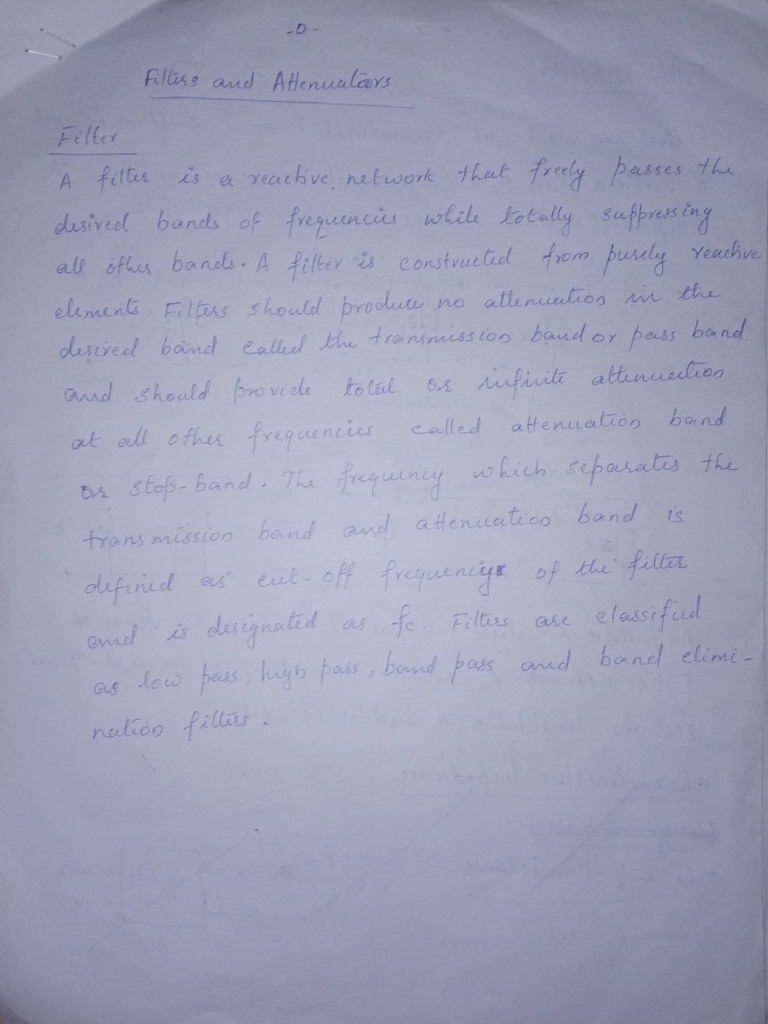 -0-
Filters and Attenuators
Filter
A filter is a reactive network that freely passes the
desired bands of frequencies while totally suppressing
all other bands. A filter is constructed from purely reactive
elements Filters should produce no attenuation in the
desired band called the transmission band or pass band
and should provide total or infinite attenuation
at all other frequencies called attenuation band
or stop-band. The frequency which separates the
transmission band and attenuation band is
defined as cut-off frequency of the filter
and is designated as fc. Filters are classified
as low pass, high pass, band pass and band elimi-
nation filters.